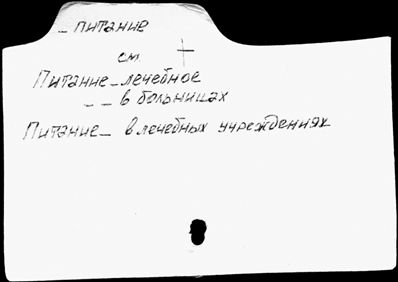 – питание
см. +
Питание – лечебное
– – в больницах
Питание – в лечебных учреждениях